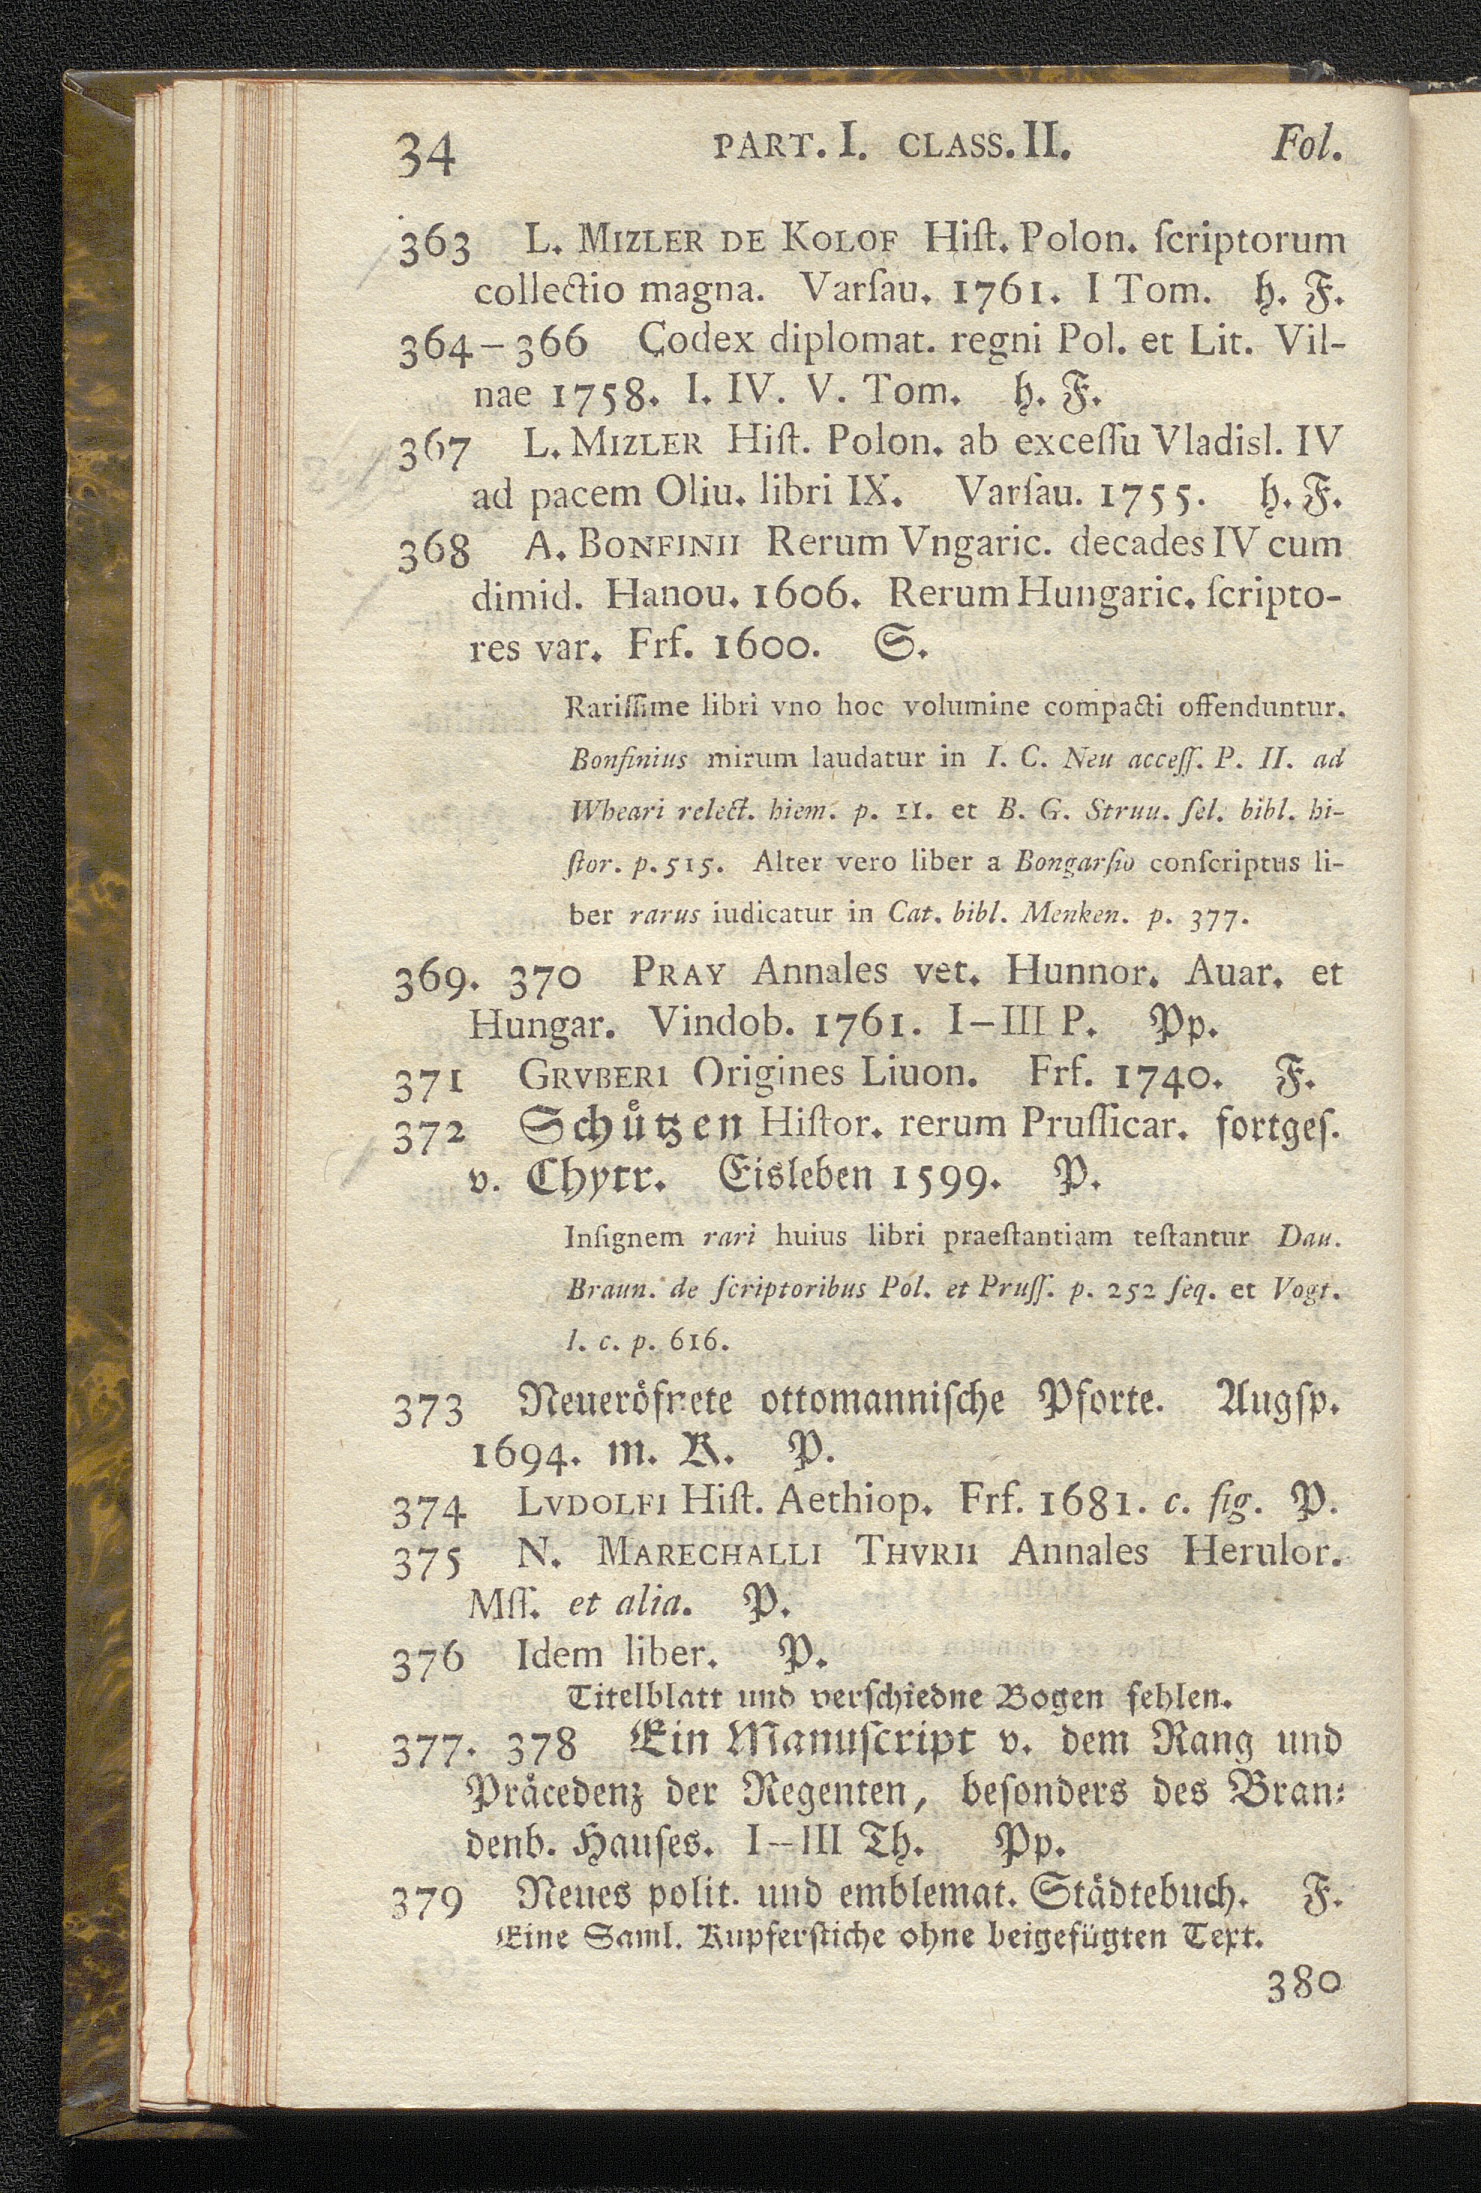 34 PART. I. CLASS. II. Fol.
363 L. MIZLER DE KOLOF Hiſt. Polon. ſcriptorum
collectio magna. Varſau. 1761. I Tom. h. F.
364–366 Codex diplomat. regni Pol. et Lit. Vil-
nae 1758. I. IV. V. Tom. h. F.
367 L. MIZLER Hiſt. Polon. ab exceſſu Vladisl. IV
ad pacem Oliu. libri IX. Varſau. 1755. h. F.
368 A. BONFINII Rerum Vngaric. decades IV cum
dimid. Hanou. 1606. Rerum Hungaric. ſcripto-
res var. Frf. 1600. S.
Rariſſime libri vno hoc volumine compacti offenduntur.
Bonfinius mirum laudatur in I. C. Neu acceſſ. P. II. ad
Wheari relect. hiem. p. 11. et B. G. Struu. ſel. bibl. hi-
ſtor. p. 515. Alter vero liber a Bongarſio conſcriptus li-
ber rarus iudicatur in Cat. bibl. Menken. p. 377.
369. 370 PRAY Annales vet. Hunnor. Auar. et
Hungar. Vindob. 1761. I–III P. Pp.
371 GRVBERI Origines Liuon. Frf. 1740. F.
372 Schuͤtzen Hiſtor. rerum Pruſſicar. fortgeſ.
v. Chytr. Eisleben 1599. P.
Inſignem rari huius libri praeſtantiam teſtantur Dau.
Braun. de ſcriptoribus Pol. et Pruſſ. p. 252 ſeq. et Vogt.
l. c. p. 616.
373 Neueröfnete ottomanniſche Pforte. Augſp.
1694. m. K. P.
374 LVDOLFI Hiſt. Aethiop. Frf. 1681. c. fig. P.
375 N. MARECHALLI THVRII Annales Herulor.
Mſſ. et alia. P.
376 Idem liber. P.
Titelblatt und verſchiedne Bogen fehlen.
377. 378 Ein Manuſcript v. dem Rang und
Praͤcedenz der Regenten, beſonders des Bran-
denb. Hauſes. I–III Th. Pp.
379 Neues polit. und emblemat. Städtebuch. F.
Eine Saml. Kupferſtiche ohne beigefügten Text.
380